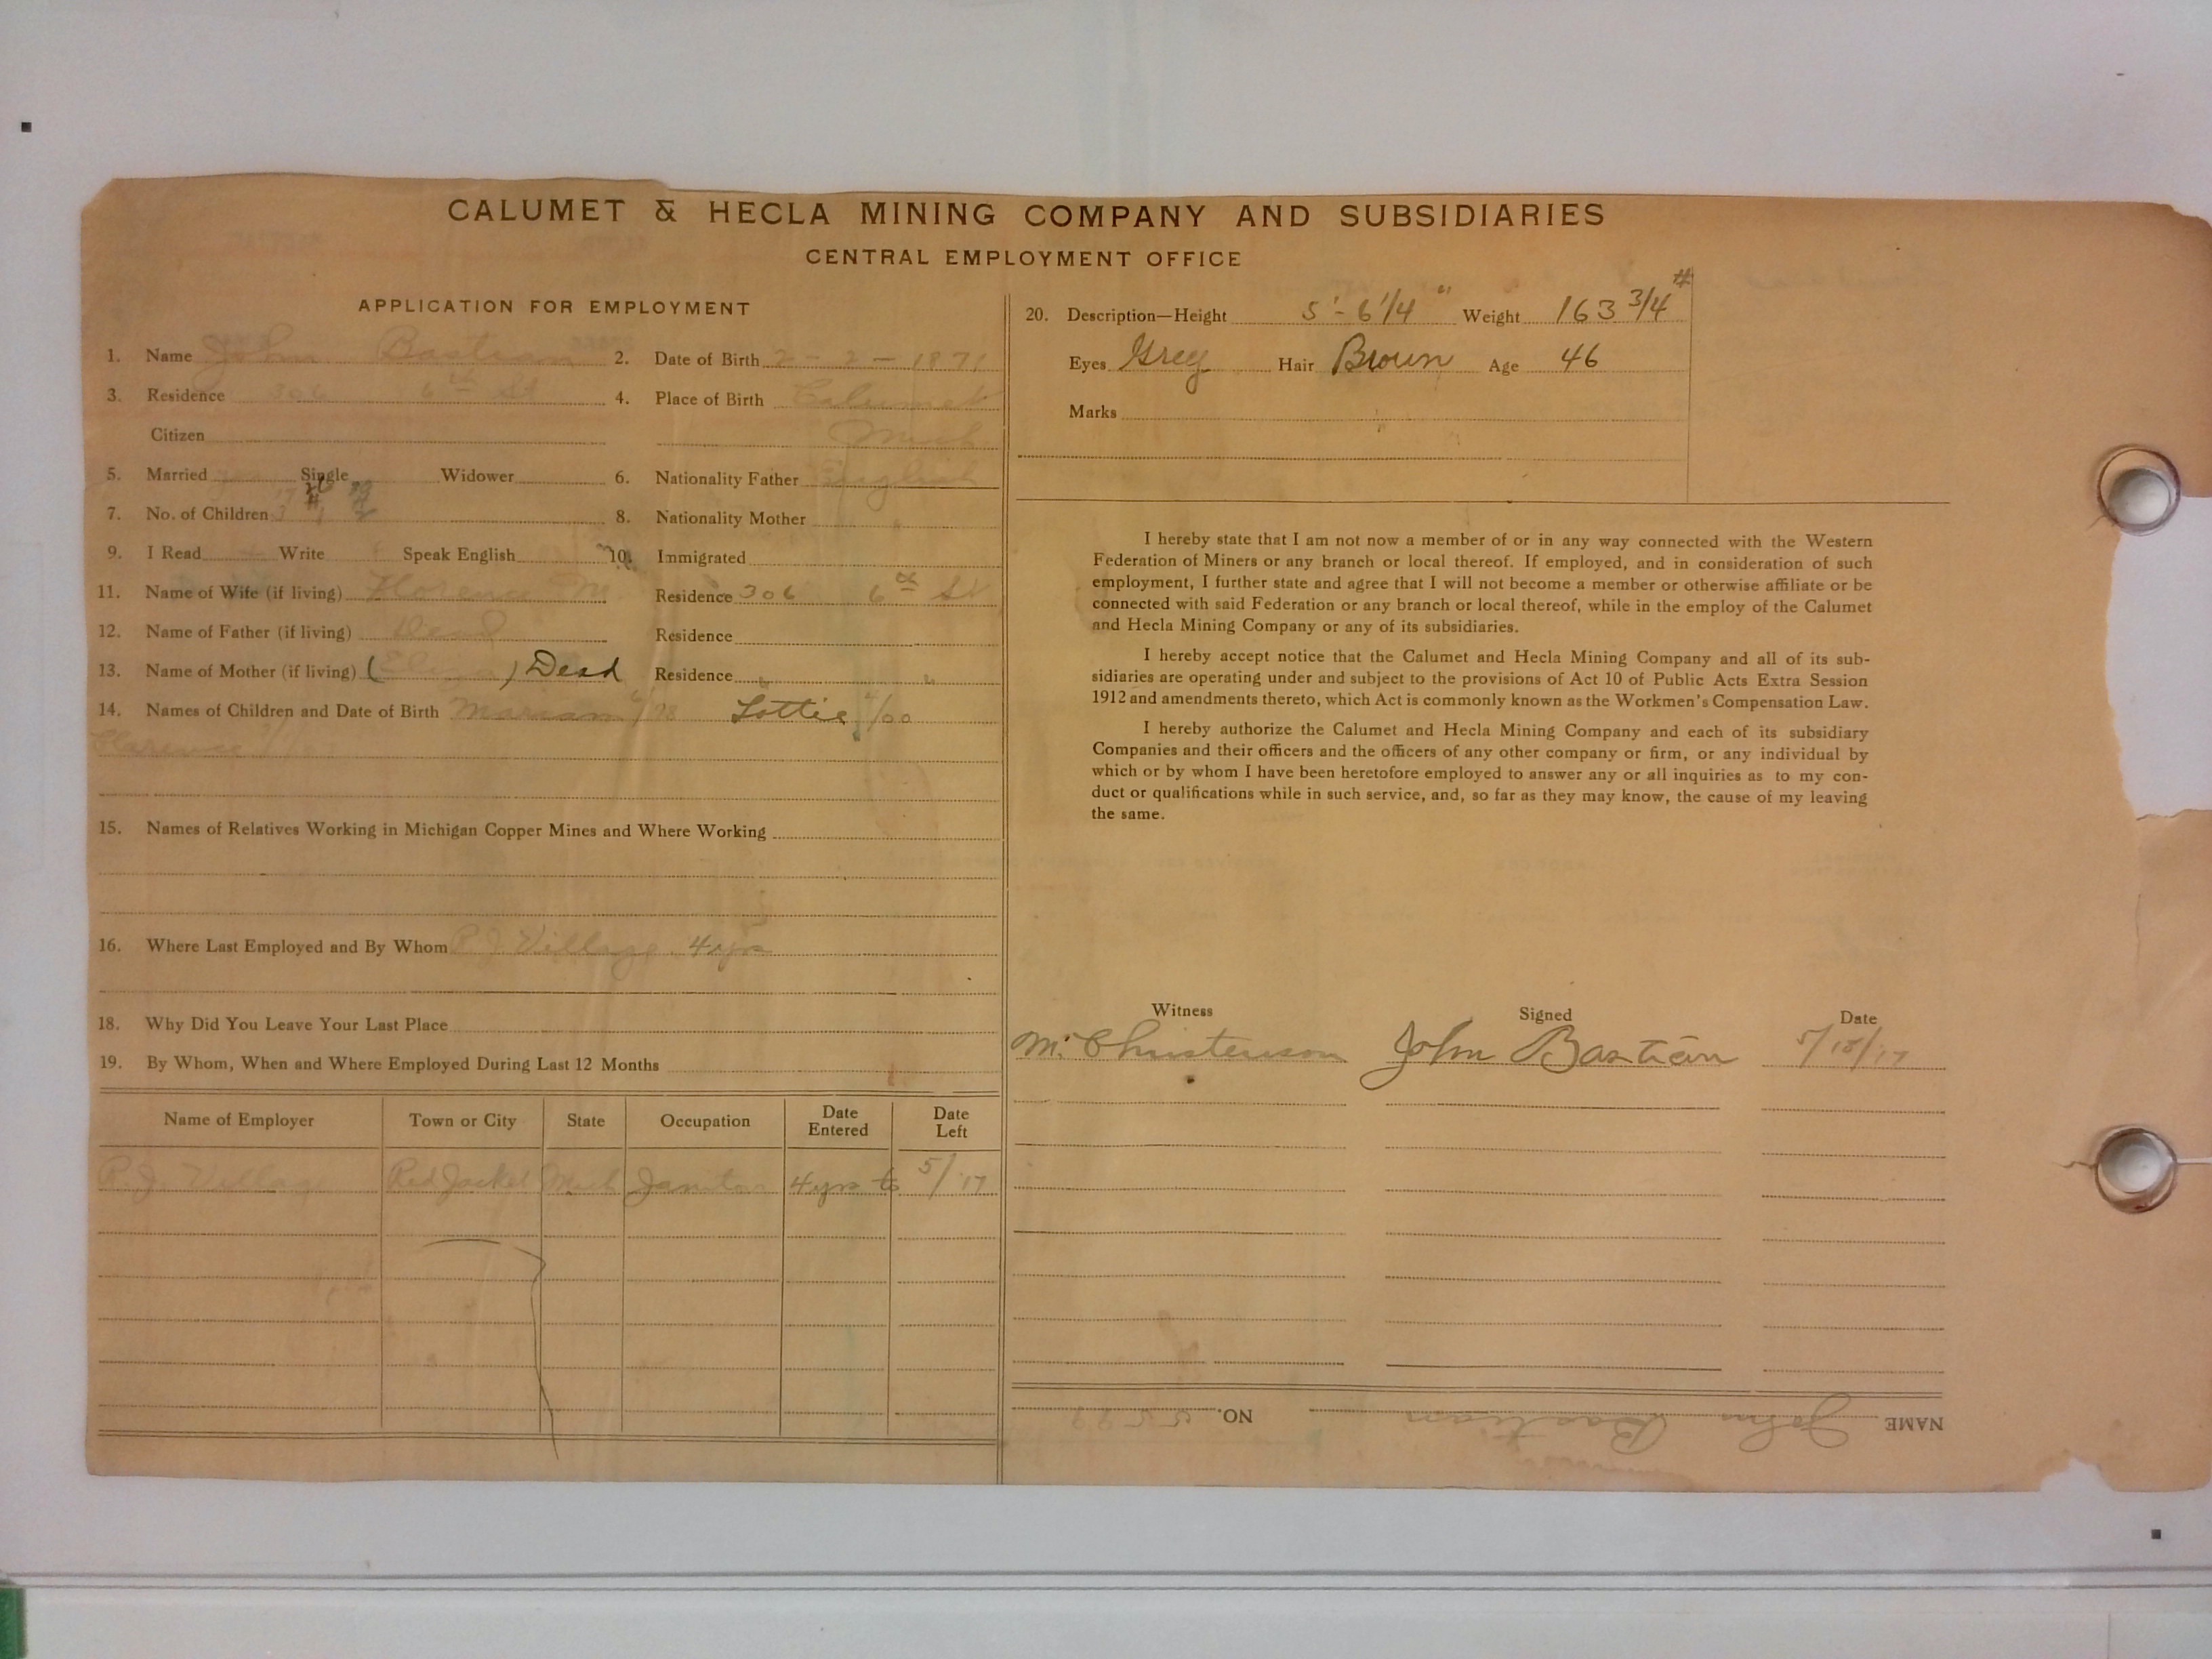 CALUMET & HECLA MINING COMPANY AND SUBSIDIARIES
CENTRAL EMPLOYMENT OFFICE
APPLICATION FOR EMPLOYMENT
1. Name John Bastian 2. Date of Birth 2 - 2 - 1871
3. Residence 306 6th St 4. Place of Birth Calumet
Citizen Mich
5. Married Single Widower 6. Nationality Father English
7. No. of Children 3 8. Nationality Mother "
9. I Read Write Speak English 10. Immigrated
11. Name of Wife (if living) Florence M. Residence 306 6th St
12. Name of Father (if living) Dead Residence
13. Name of Mother (if living) (Eliza) Dead Residence " "
14. Names of Children and Date of Birth Mariam /98 Lottie /00
Florence
15. Names of Relatives Working in Michigan Copper Mines and Where Working
16. Where Last Employed and By Whom R J Village 4 yrs
18. Why Did You Leave Your Last Place
19. By Whom, When and Where Employed During Last 12 Months
Name of Employer Town or City State Occupation Date Entered Date Left
R. J. Village Red Jacket Mich Janitor 4 yrs to 5/'17
20. Description—Height 5'-6 1/4" Weight 163 3/4 #
Eyes Grey Hair Brown Age 46
Marks
I hereby state that I am not now a member of or in any way connected with the Western
Federation of Miners or any branch or local thereof. If employed, and in consideration of such
employment, I further state and agree that I will not become a member or otherwise affiliate or be
connected with said Federation or any branch or local thereof, while in the employ of the Calumet
and Hecla Mining Company or any of its subsidiaries.
I hereby accept notice that the Calumet and Hecla Mining Company and all of its sub-
sidiaries are operating under and subject to the provisions of Act 10 of Public Acts Extra Session
1912 and amendments thereto, which Act is commonly known as the Workmen's Compensation Law.
I hereby authorize the Calumet and Hecla Mining Company and each of its subsidiary
Companies and their officers and the officers of any other company or firm, or any individual by
which or by whom I have been heretofore employed to answer any or all inquiries as to my con-
duct or qualifications while in such service, and, so far as they may know, the cause of my leaving
the same.
Witness Signed Date
M. Christenson John Bastian 5/15/17
NAME John Bastian NO.